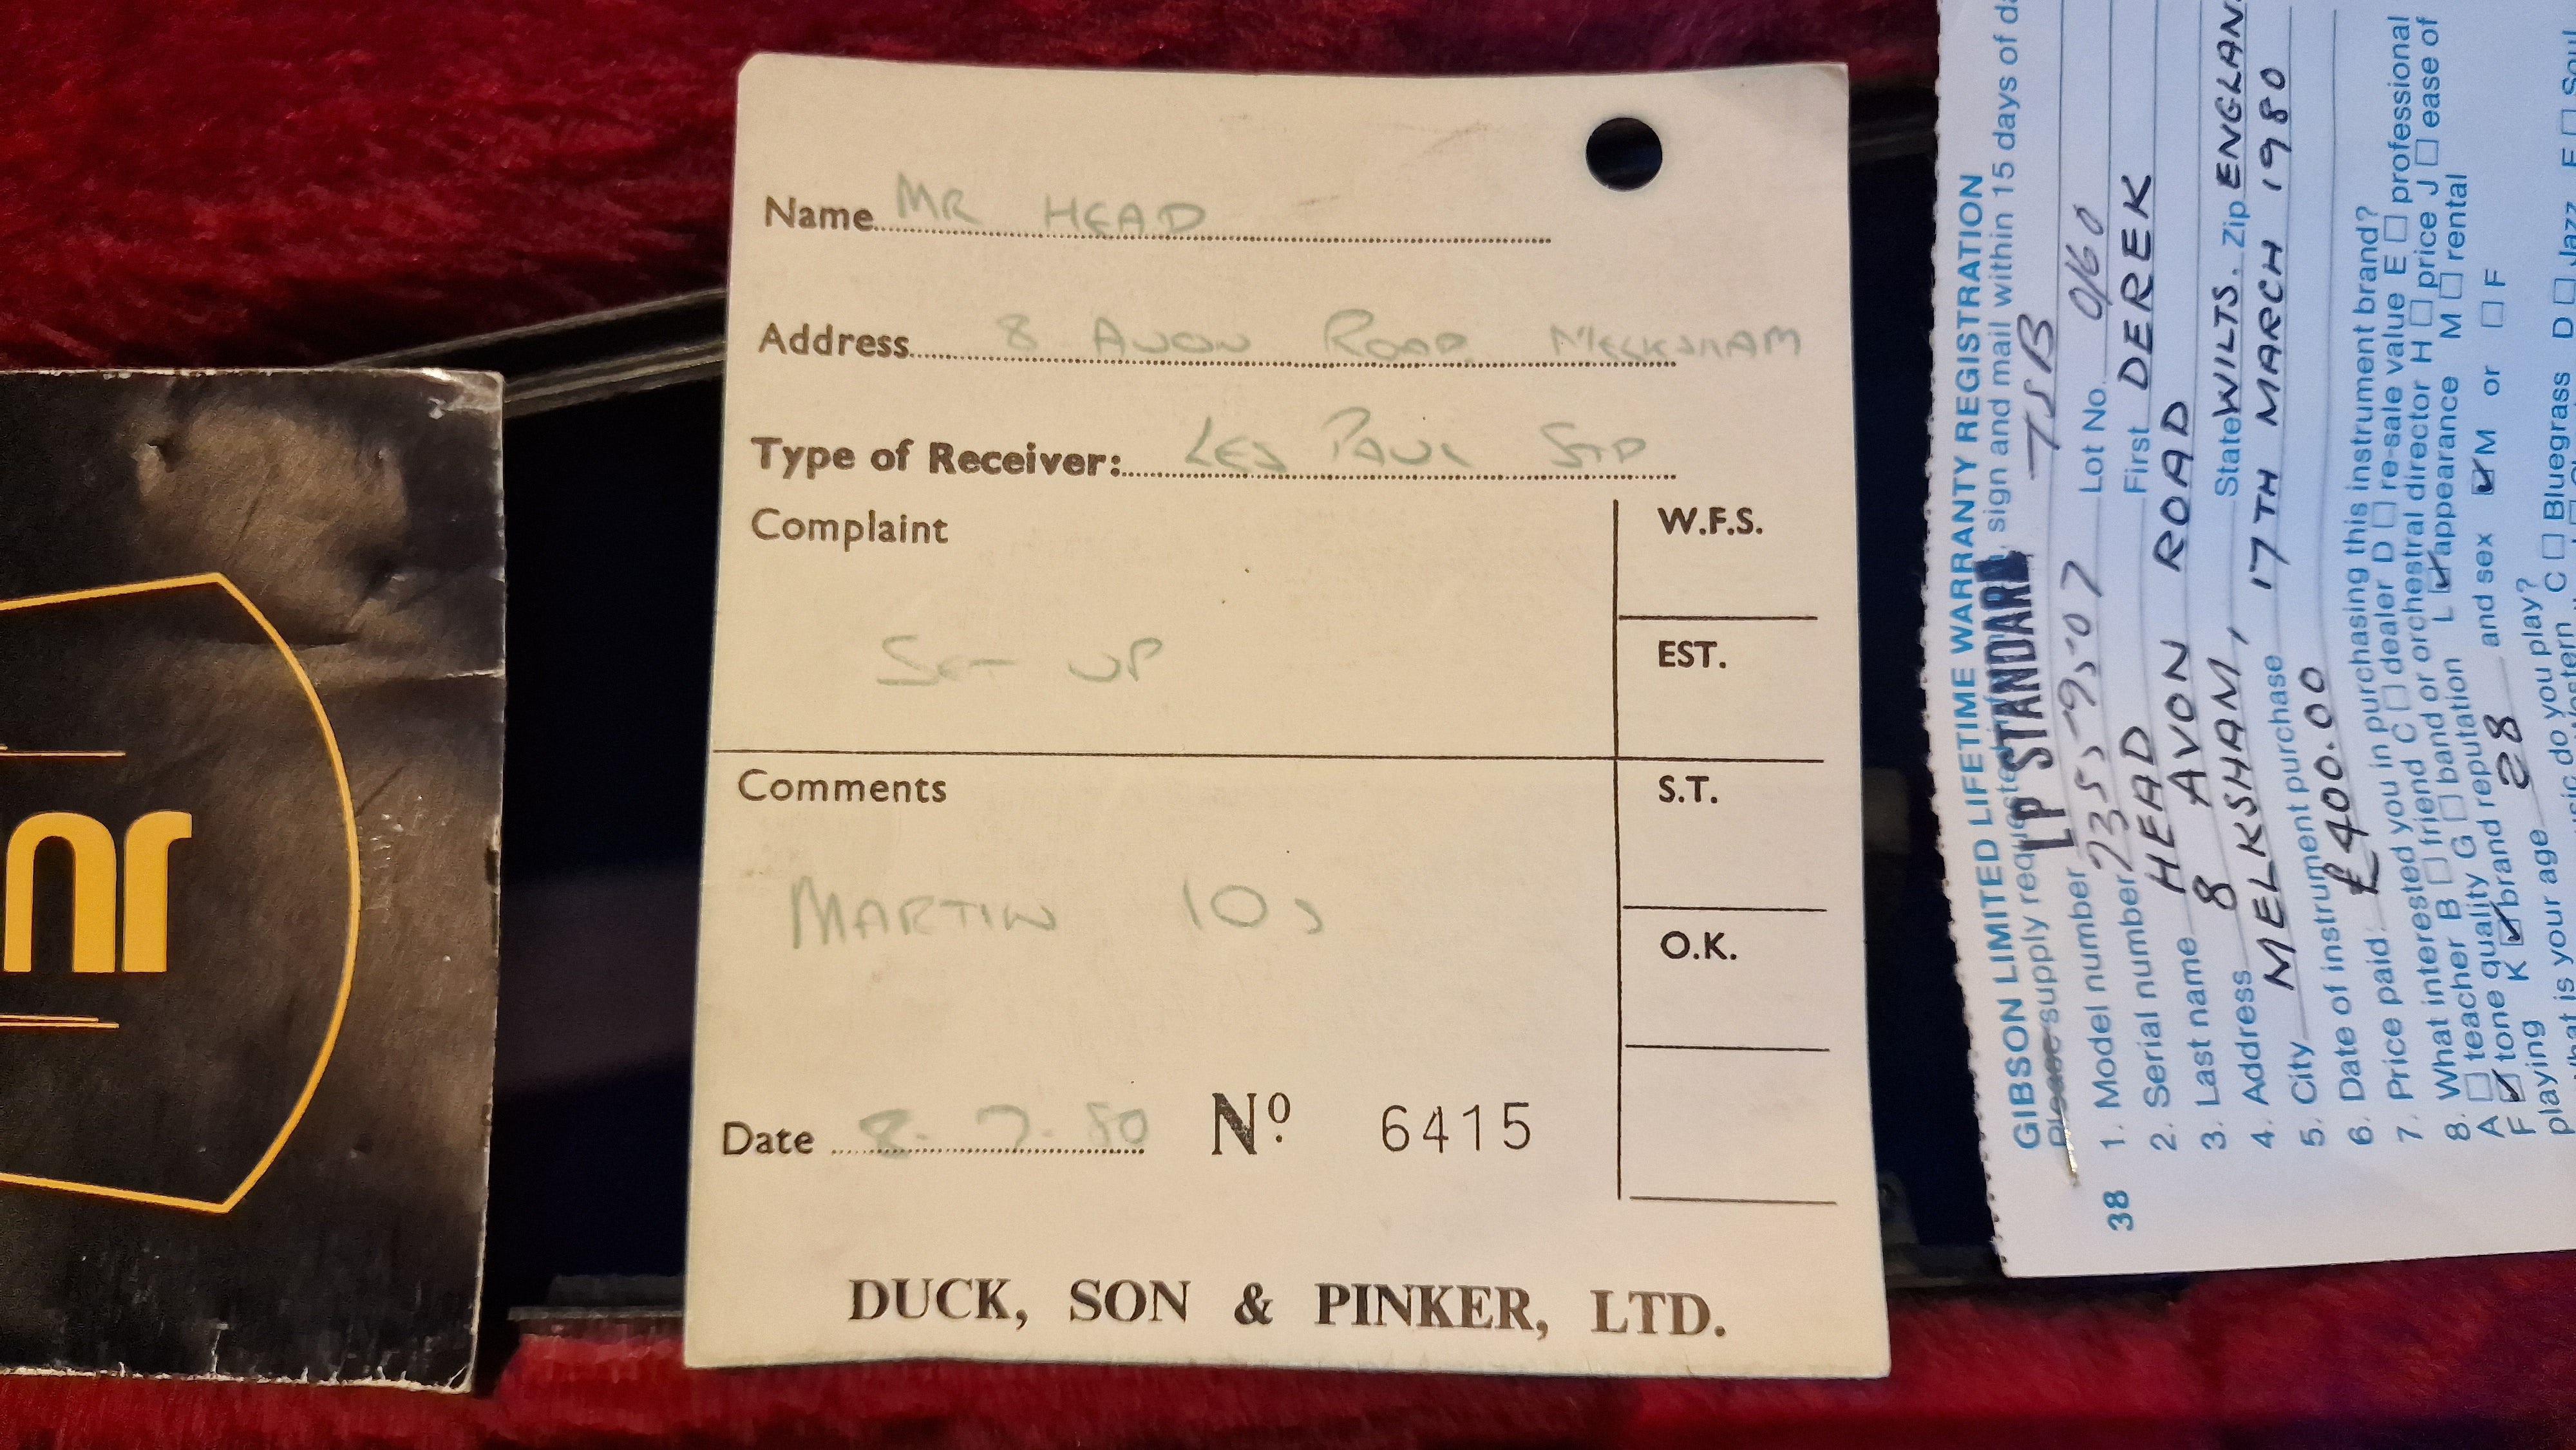 nr
Name MR HEAD
Address 8 AVON ROAD MELKSHAM
Type of Receiver: LES PAUL STD
Complaint
W.F.S.
SET UP
EST.
Comments
S.T.
MARTIN 10s
O.K.
Date 8.7.80 No 6415
DUCK, SON & PINKER, LTD.
GIBSON LIMITED LIFETIME WARRANTY REGISTRATION
Please supply requested sign and mail within 15 days of
LP STANDARD TSB
1. Model number
2. Serial number 73559507 Lot No. 0160
3. Last name HEAD First DEREK
4. Address 8 AVON ROAD
5. City MELKSHAM, State WILTS. Zip ENGLAN
6. Date of instrument purchase 17TH MARCH 1980
7. Price paid £400.00
8. What interested you in purchasing this instrument brand?
A teacher B friend C dealer D re-sale value E professional
F tone quality G band or orchestral director H price J ease of
playing K brand reputation L appearance M rental
What is your age 28 and sex M or F
do you play?
C Bluegrass D Jazz E Soul
38